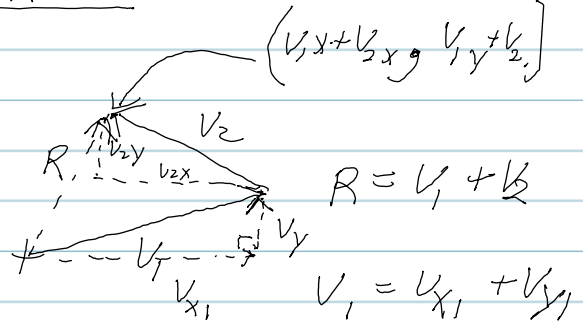 (V₁x+V₂x, V₁y+V₂,)
V₂
V₂y
V₂x
R
R = V₁ + V₂
Vy
V₁
Vx₁
V₁ = Vx₁ + Vy₁